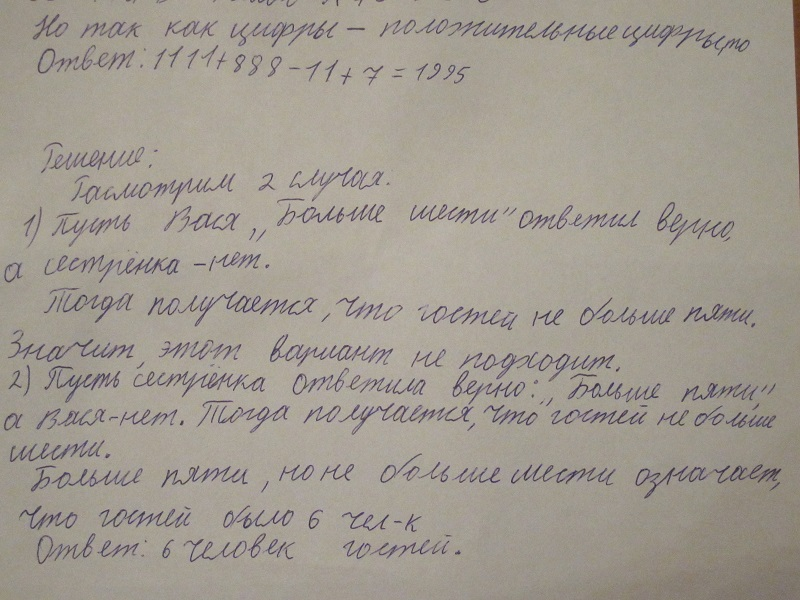 Но так как цифры – положительные цифры, то
Ответ: 1111+888–11+7=1995
Решение:
Расмотрим 2 случая.
1) Пусть Вася „Больше шести" ответил верно,
а сестрёнка – нет.
Тогда получается, что гостей не больше пяти.
Значит, этот вариант не подходит.
2) Пусть сестрёнка ответила верно: „Больше пяти"
а Вася – нет. Тогда получается, что гостей не больше
шести.
Больше пяти, но не больше шести означает,
что гостей было 6 чел-к
Ответ: 6 человек гостей.